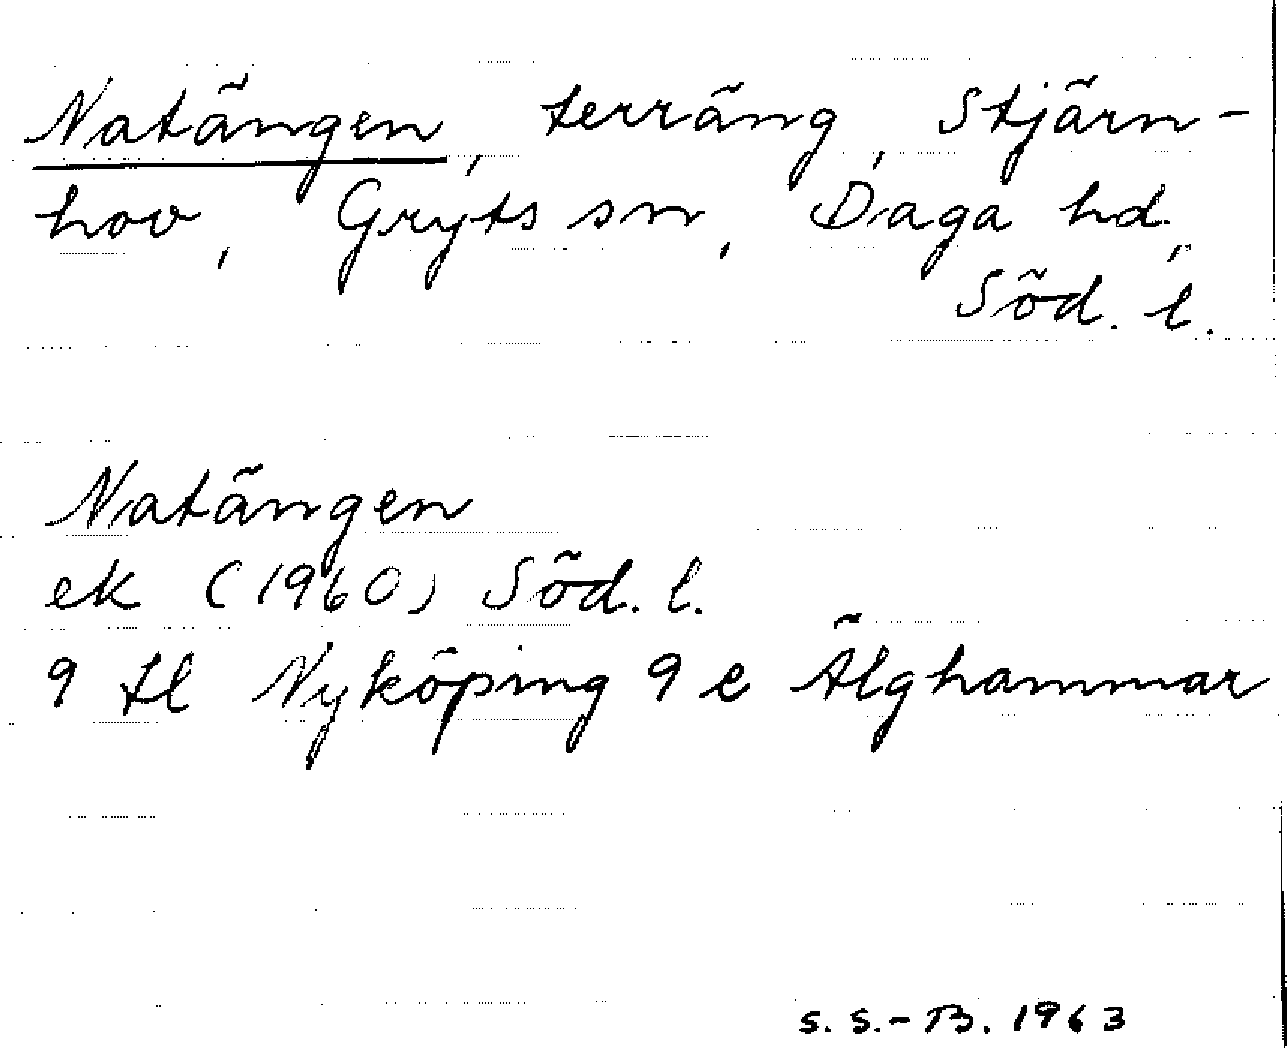 Natängen, terräng, Stjärn-
hov, Gryts sn, Daga hd,
Söd. l.
Natängen
ek (1960) Söd. l.
9 fl Nyköping 9 e Älghammar
S. S.-B. 1963